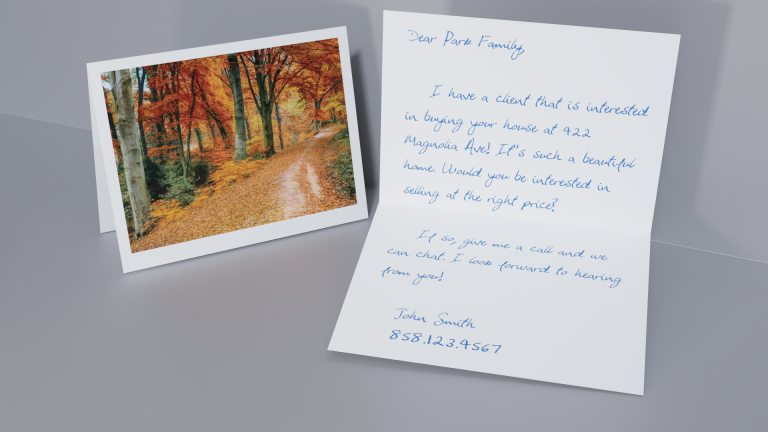 Dear Park Family,
I have a client that is interested
in buying your house at 422
Magnolia Ave! It's such a beautiful
home. Would you be interested in
selling at the right price?
If so, give me a call and we
can chat. I look forward to hearing
from you!
John Smith
858.123.4567